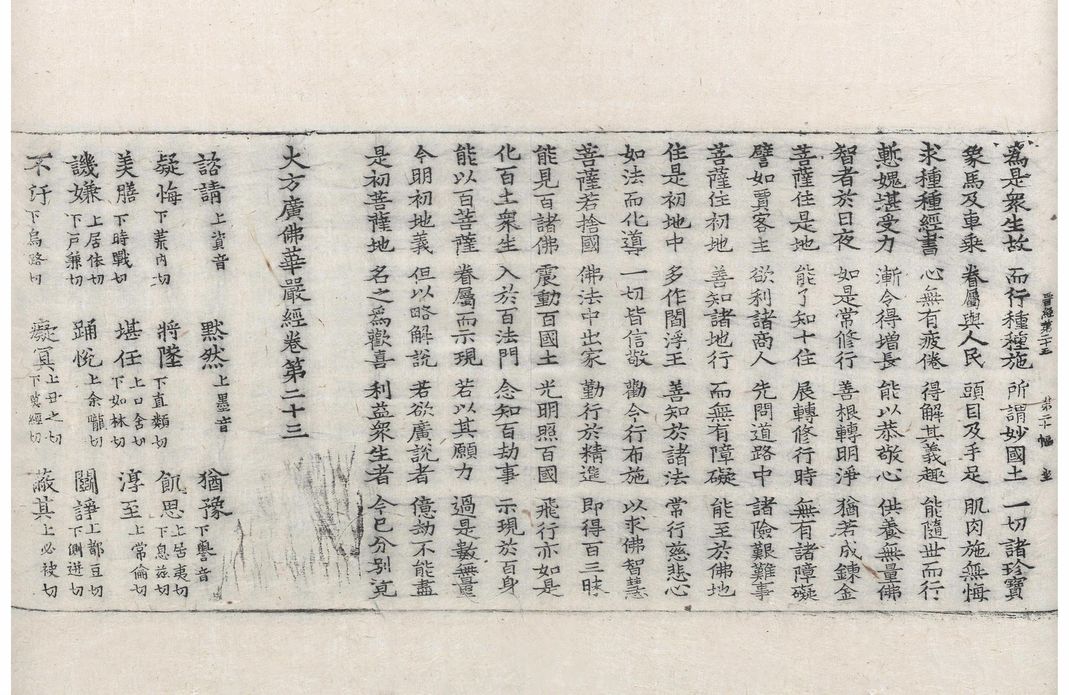 為是衆生故 而行種種施 所謂妙國土 一切諸珍寶
象馬及車乘 眷屬與人民 頭目及手足 肌肉施無悔
求種種經書 心無有疲倦 得解其義趣 能隨世而行
慙愧堪受力 漸令得增長 能以恭敬心 供養無量佛
智者於日夜 如是常修行 善根轉明淨 猶若成鍊金
菩薩住是地 能了知十住 展轉修行時 無有諸障礙
譬如賈客主 欲利諸商人 先問道路中 諸險艱難事
菩薩住初地 善知諸地行 而無有障礙 能至於佛地
住是初地中 多作閻浮王 善知於諸法 常行慈悲心
如法而化導 一切皆信敬 勸令行布施 以求佛智慧
菩薩若捨國 佛法中出家 勤行於精進 即得百三昧
能見百諸佛 震動百國土 光明照百國 飛行亦如是
化百土衆生 入於百法門 念知百劫事 示現於百身
能以百菩薩 眷屬而示現 若以其願力 過是數無量
今明初地義 但以略解說 若欲廣說者 億劫不能盡
是初菩薩地 名之為歡喜 利益衆生者 今已分別竟
大方廣佛華嚴經卷第二十三
諮請上資音 黙然上墨音 猶豫下譽音
疑悔下荒内切 將墜下直類切 飢思上居夷切下息兹切
美膳下時戰切 堪任上口含切下如林切 淳至上常倫切
譏嫌上居依切下戶兼切 踊悅上余隴切 鬪諍上都豆切下側迸切
不汙下烏路切 癡冥上丑之切下莫經切 蔽其上必袂切
晋經第二十三 第二十幅